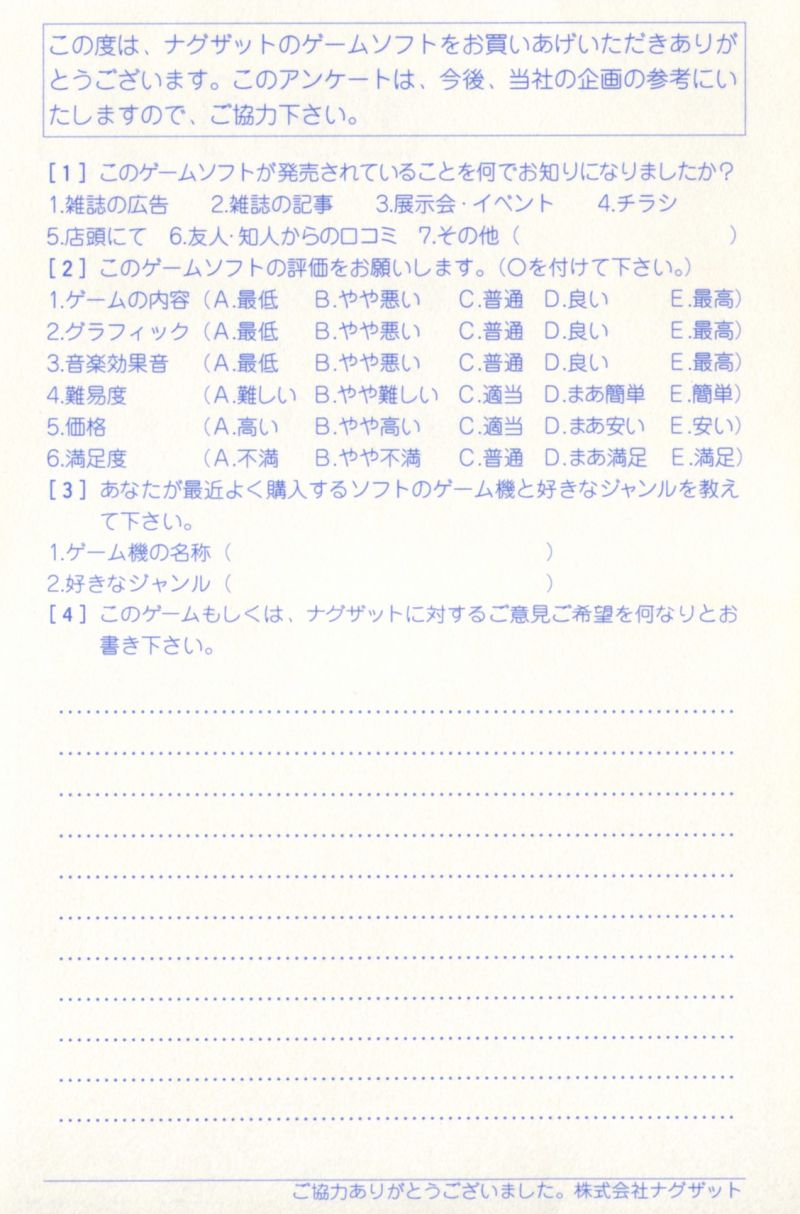 この度は、ナグザットのゲームソフトをお買いあげいただきありが
とうございます。このアンケートは、今後、当社の企画の参考にい
たしますので、ご協力下さい。
[1] このゲームソフトが発売されていることを何でお知りになりましたか?
1.雑誌の広告 2.雑誌の記事 3.展示会・イベント 4.チラシ
5.店頭にて 6.友人・知人からの口コミ 7.その他 ( )
[2] このゲームソフトの評価をお願いします。(○を付けて下さい。)
1.ゲームの内容 (A.最低 B.やや悪い C.普通 D.良い E.最高)
2.グラフィック (A.最低 B.やや悪い C.普通 D.良い E.最高)
3.音楽効果音 (A.最低 B.やや悪い C.普通 D.良い E.最高)
4.難易度 (A.難しい B.やや難しい C.適当 D.まあ簡単 E.簡単)
5.価格 (A.高い B.やや高い C.適当 D.まあ安い E.安い)
6.満足度 (A.不満 B.やや不満 C.普通 D.まあ満足 E.満足)
[3] あなたが最近よく購入するソフトのゲーム機と好きなジャンルを教え
て下さい。
1.ゲーム機の名称 ( )
2.好きなジャンル ( )
[4] このゲームもしくは、ナグザットに対するご意見ご希望を何なりとお
書き下さい。
ご協力ありがとうございました。株式会社ナグザット